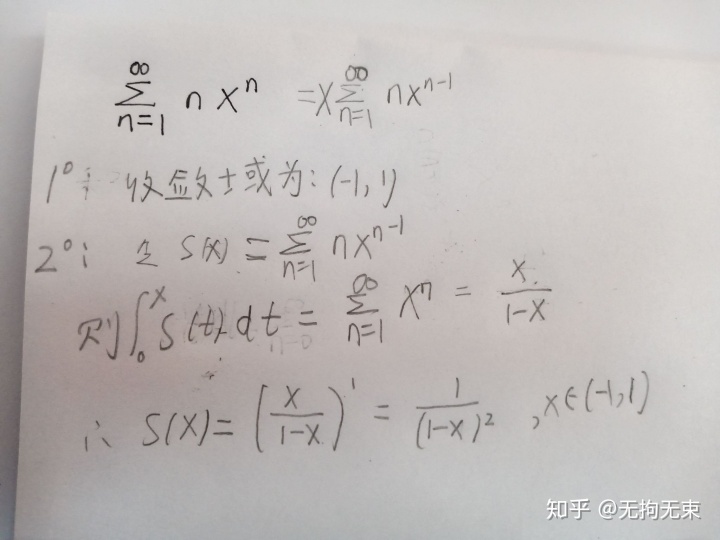 ∑_{n=1}^{∞} n x^n = x ∑_{n=1}^{∞} n x^{n-1}
1°: 收敛域为: (-1, 1)
2°: 令 S(x) = ∑_{n=1}^{∞} n x^{n-1}
则 ∫_0^x S(t) dt = ∑_{n=1}^{∞} x^n = x/(1-x)
∴ S(x) = (x/(1-x))' = 1/(1-x)^2 , x∈(-1,1)
知乎 @无拘无束